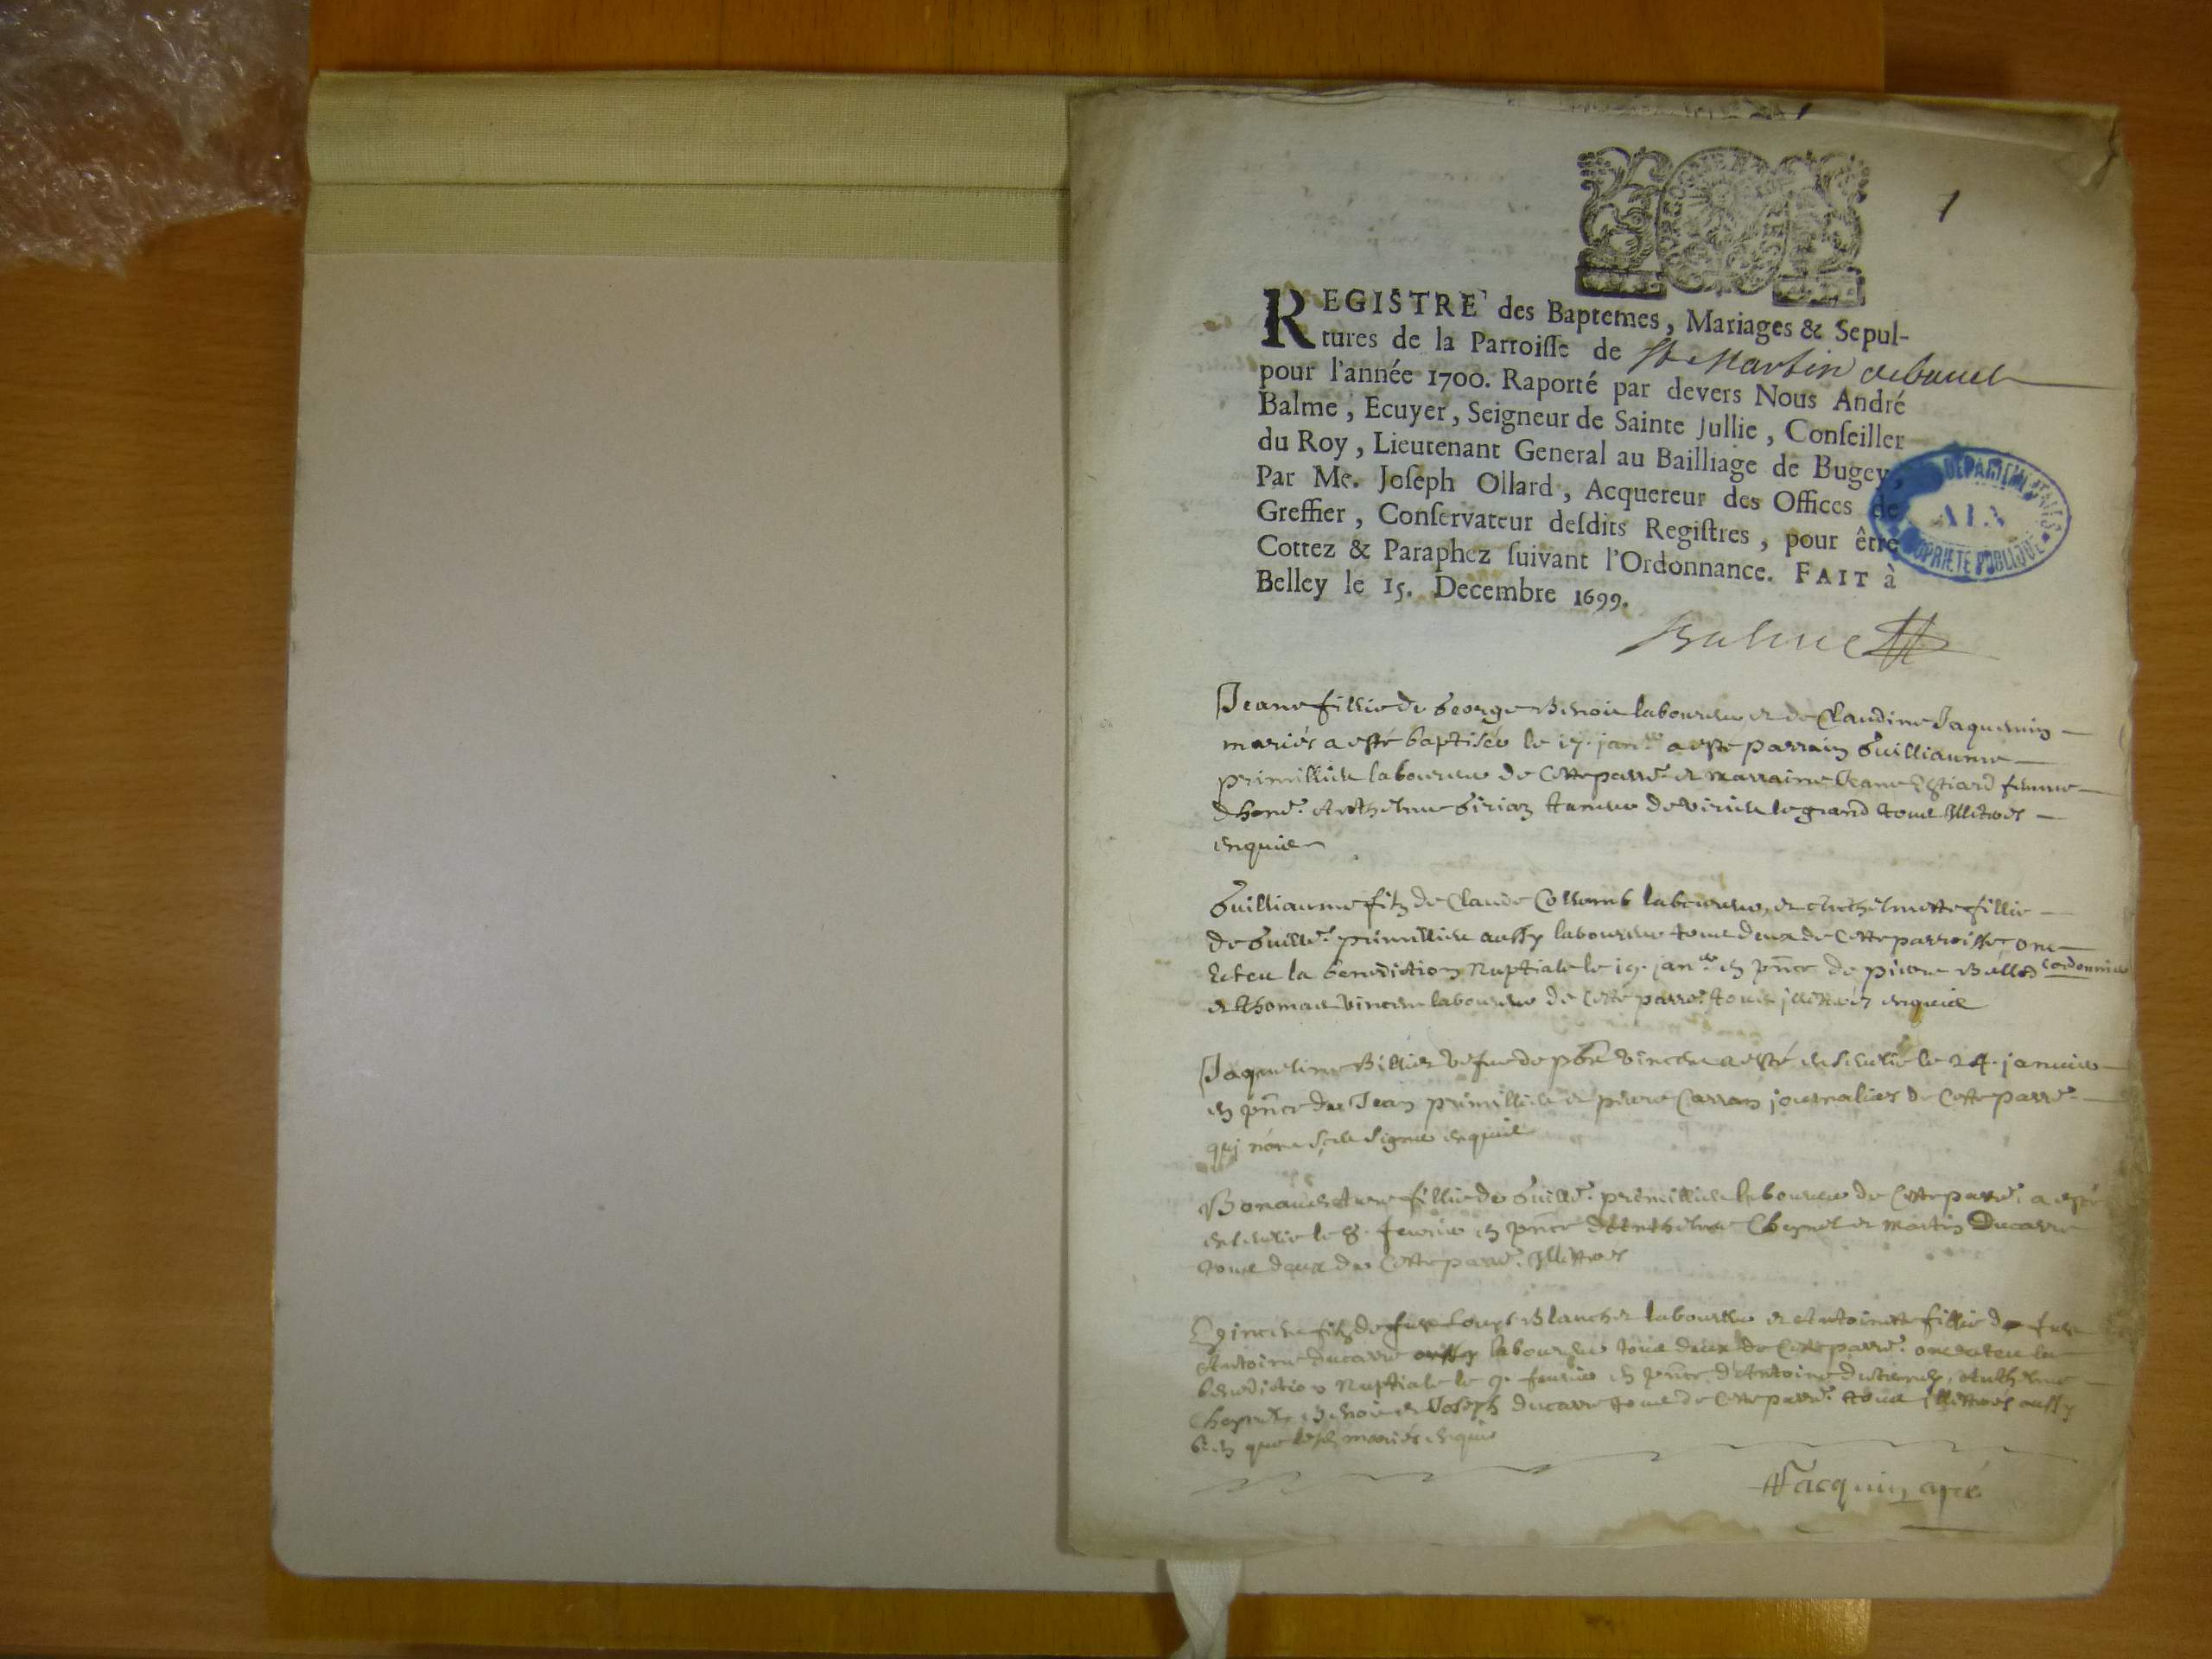 1
REGISTRE des Baptemes, Mariages & Sepul-
tures de la Parroisse de St Martin debauel
pour l'année 1700. Raporté par devers Nous André
Balme, Ecuyer, Seigneur de Sainte Jullie, Conseiller
du Roy, Lieutenant General au Bailliage de Bugey,
Par Me. Joseph Ollard, Acquereur des Offices de
Greffier, Conservateur desdits Registres, pour être
Cottez & Paraphez suivant l'Ordonnance. FAIT à
Belley le 15. Decembre 1699.
DEPARTEMENTALES
AIN
PROPRIETE PUBLIQUE
Balme
Jeane fillie de George Benoit laboureur et de Claudine Jaquemin
mariés a esté baptisée le 17. janer a esté parrain Guilliaume
primillieu laboureur de cette parre et marraine Jeane femme
d'hone Anthelme tanneur de virieu le grand tous illitrés
enquis
Guilliaume fitz de Claude Collomb laboureur, et Anthelmette fillie
de Guille primillieu aussy laboureur tous deux de cette parroisse ont
receu la benediction Nuptiale le 19. janer en pnce de pierre Ballod cordonnier
et thomas vincent laboureur de cette parre tous illittrés enquis
Jaqueline Billiet vefue de vincent a esté enseuelie le 24. januier
en pnce de Jean primillieu et pierre Carran journaliers de cette parre
qui n'ont sceu signer enquis
Bonauenture fillie de Guille primillieu laboureur de cette parre a esté
enseuelie le 8. feurier en pnce d'Anthelme Cheynel et martin Ducarre
tous deux de cette parre illittrés
fitz de feu Louys Blanchet laboureur et Antoinette fillie de feu
Antoine ducarre aussy laboureur tous deux de cette parre ont receu la
benediction Nuptiale le 9. feurier en pnce d'Antoine Anthelme
Benoit et Joseph ducarre tous de cette parre tous illittrés aussy
bien que lesd mariés enquis
Jacquin